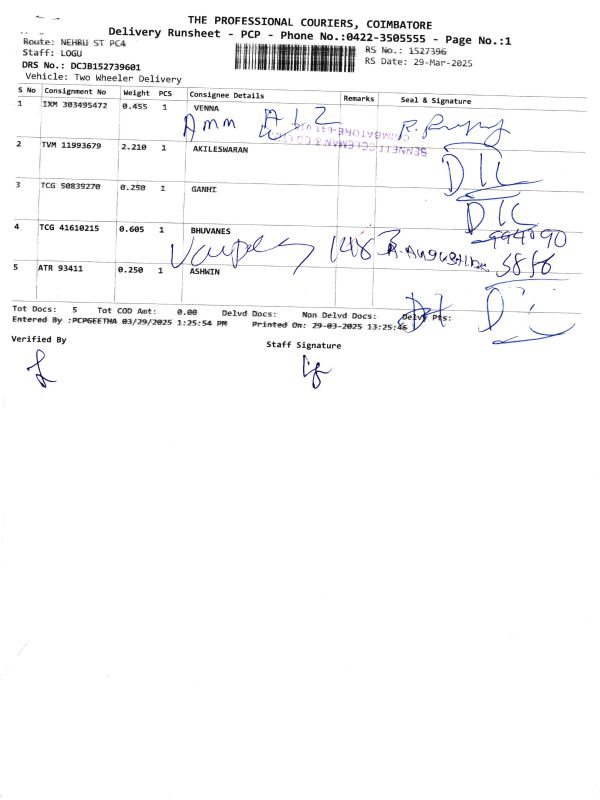 THE PROFESSIONAL COURIERS, COIMBATORE
Delivery Runsheet - PCP - Phone No.:0422-3505555 - Page No.:1
Route: NEHRU ST PC4
RS No.: 1527396
Staff: LOGU
RS Date: 29-Mar-2025
DRS No.: DCJB152739601
Vehicle: Two Wheeler Delivery
S No Consignment No Weight PCS Consignee Details Remarks Seal & Signature
1 IXM 303495472 0.455 1 VENNA
Amm
BENNETT COLEMAN & CO LTD
2 TVM 11993679 2.210 1 AKILESWARAN
DTC
3 TCG 50839270 0.250 1 GANHI
DTC
4 TCG 41610215 0.605 1 BHUVANES
5 ATR 93411 0.250 1 ASHWIN
Tot Docs: 5 Tot COD Amt: 0.00 Delvd Docs: Non Delvd Docs: Delvd Pts:
Entered By :PCPGEETHA 03/29/2025 1:25:54 PM Printed On: 29-03-2025 13:25:46
Verified By
Staff Signature